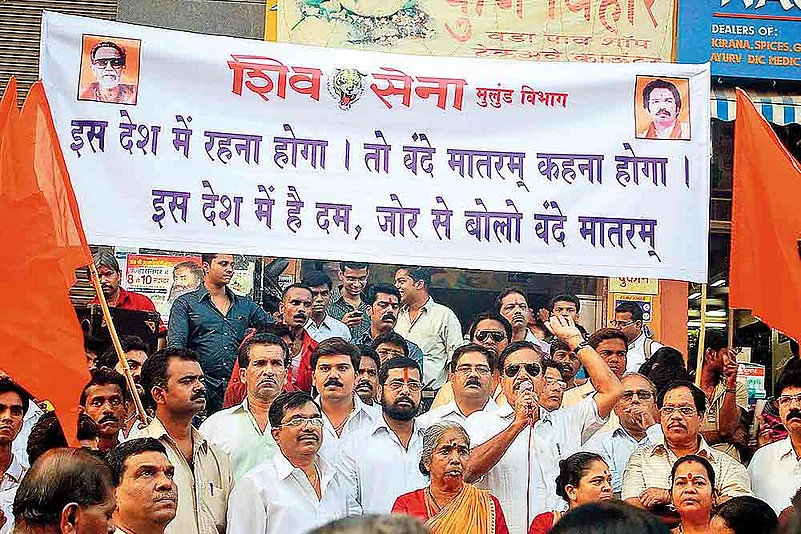 DEALERS OF:
KIRANA,SPICES,G
AYURV DIC MEDIC
शिव सेना मुलुंड विभाग
इस देश में रहना होगा । तो वंदे मातरम् कहना होगा ।
इस देश में है दम, जोर से बोलो वंदे मातरम्